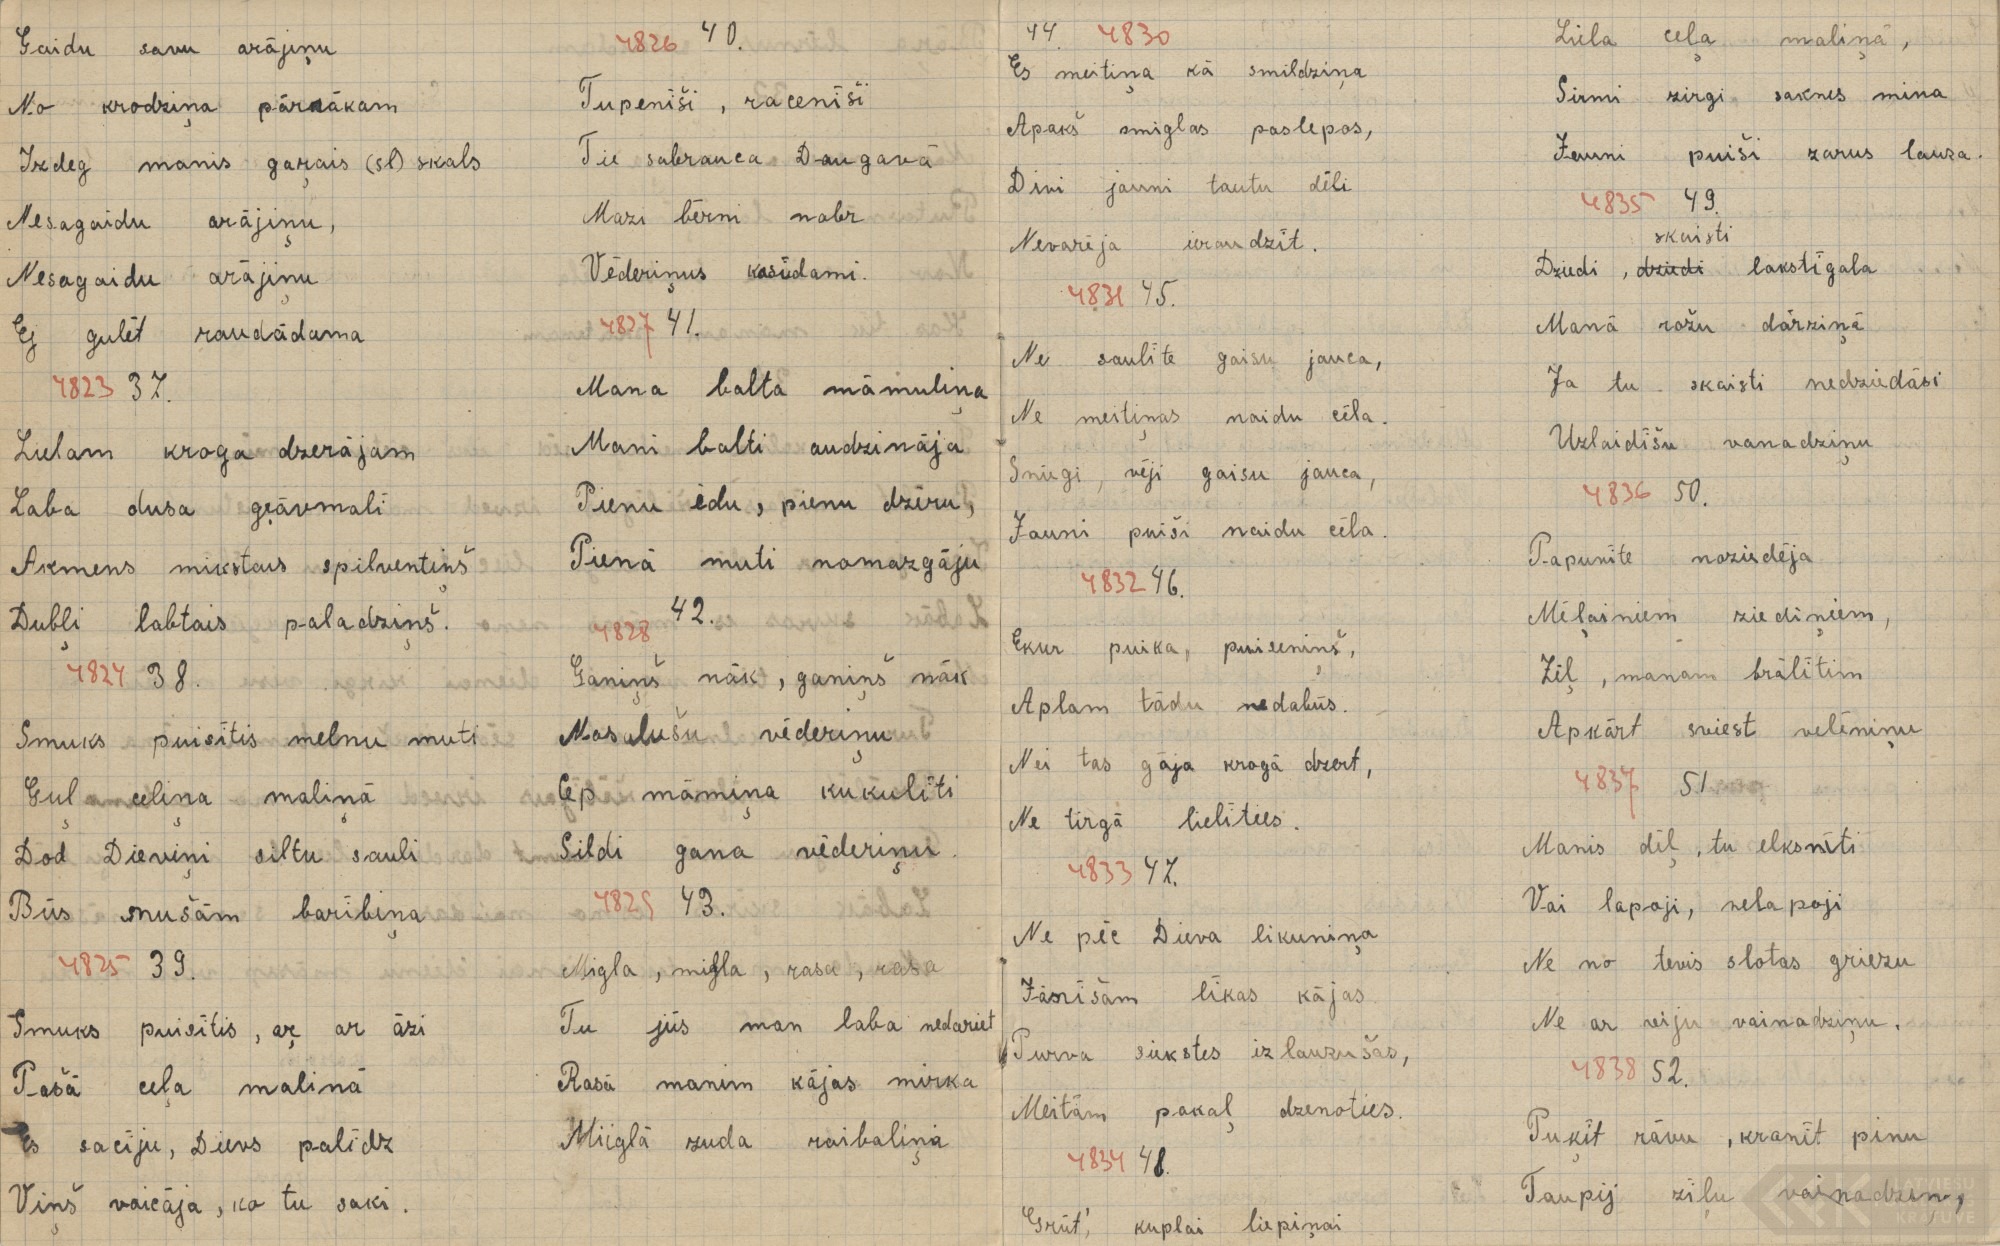 Gaidu savu arājiņu
No krodziņa pārnākam
Izdeg manis gaŗais (sl) skals
Nesagaidu arājiņu,
Nesagaidu arājiņu
Ej gulēt raudādama
4823 37.
Lielam kroga dzerājam
Laba dusa gŗāvmalī
Akmens mikstais spilventiņš
Dubļi labtais paladziņš.
4824 38.
Smuks puisītis melnu muti
Guļ celiņa maliņā
Dod Dieviņi siltu sauli
Būs mušām barībiņa
4825 39.
Smuks puisītis, aŗ ar āzi
Pašā ceļa malinā
Es sacīju, Dievs palīdz
Viņš vaicāja, ko tu saki.
4826 40.
Tupenīši, racenīši
Tie sabrauca Daugavā
Mazi bērni nabr
Vēderiņus kasīdami.
4827 41.
Mana balta māmuliņa
Mani balti audzināja
Pienu ēdu, pienu dzēru,
Pienā muti nomazgāju
4828 42.
Ganiņš nāk, ganiņš nāk
Nosalušu vēderiņu
Cep māmiņa kukulīti
Sildi gana vēderiņu.
4829 43.
Migla, migla, rasa, rasa
Tu jūs man laba nedariet
Rasā manim kājas mirka
Miiglā zuda raibaliņa
44. 4830
Es meitiņa kā smildziņa
Apakš smiglas paslepos,
Divi jauni tautu dēli
Nevarēja ieraudzīt.
4831 45.
Ne saulīte gaisu jauca,
Ne meitiņas naidu cēla.
Sniegi, vēji gaisu jauca,
Jauni puiši naidu cēla.
4832 46.
Ekur puika, puiseniņš,
Aplam tādu nedabūs.
Nei tas gāja krogā dzert,
Ne tirgā lielīties.
4833 47.
Ne pēc Dieva likuniņa
Jānīšam līkas kājas
Purva siekstes izlauzušas,
Meitām pakaļ dzenoties.
4834 48.
Grūt' kuplai liepiņai
Liela ceļa maliņā,
Sirmi zirgi saknes mina
Jauni puiši zarus lauza.
4835 49.
skaisti
Dziedi, dziedi lakstīgala
Manā rožu dārziņā
Ja tu skaisti nedziedāsi
Uzlaidīšu vanadziņu
4836 50.
Papunīte noziedēja
Mēļainiem ziediņiem,
Zēļ, manam brālītim
Apkārt sviest velēniņu
4837 51
Manis dēļ, tu elksnīti
Vai lapoji, nelapoji
Ne no tevis slotas griezu
Ne ar viju vainadziņu.
4838 52.
Puķīt rāvu, kranīt pinu
Taupij zīļu vainadzen,